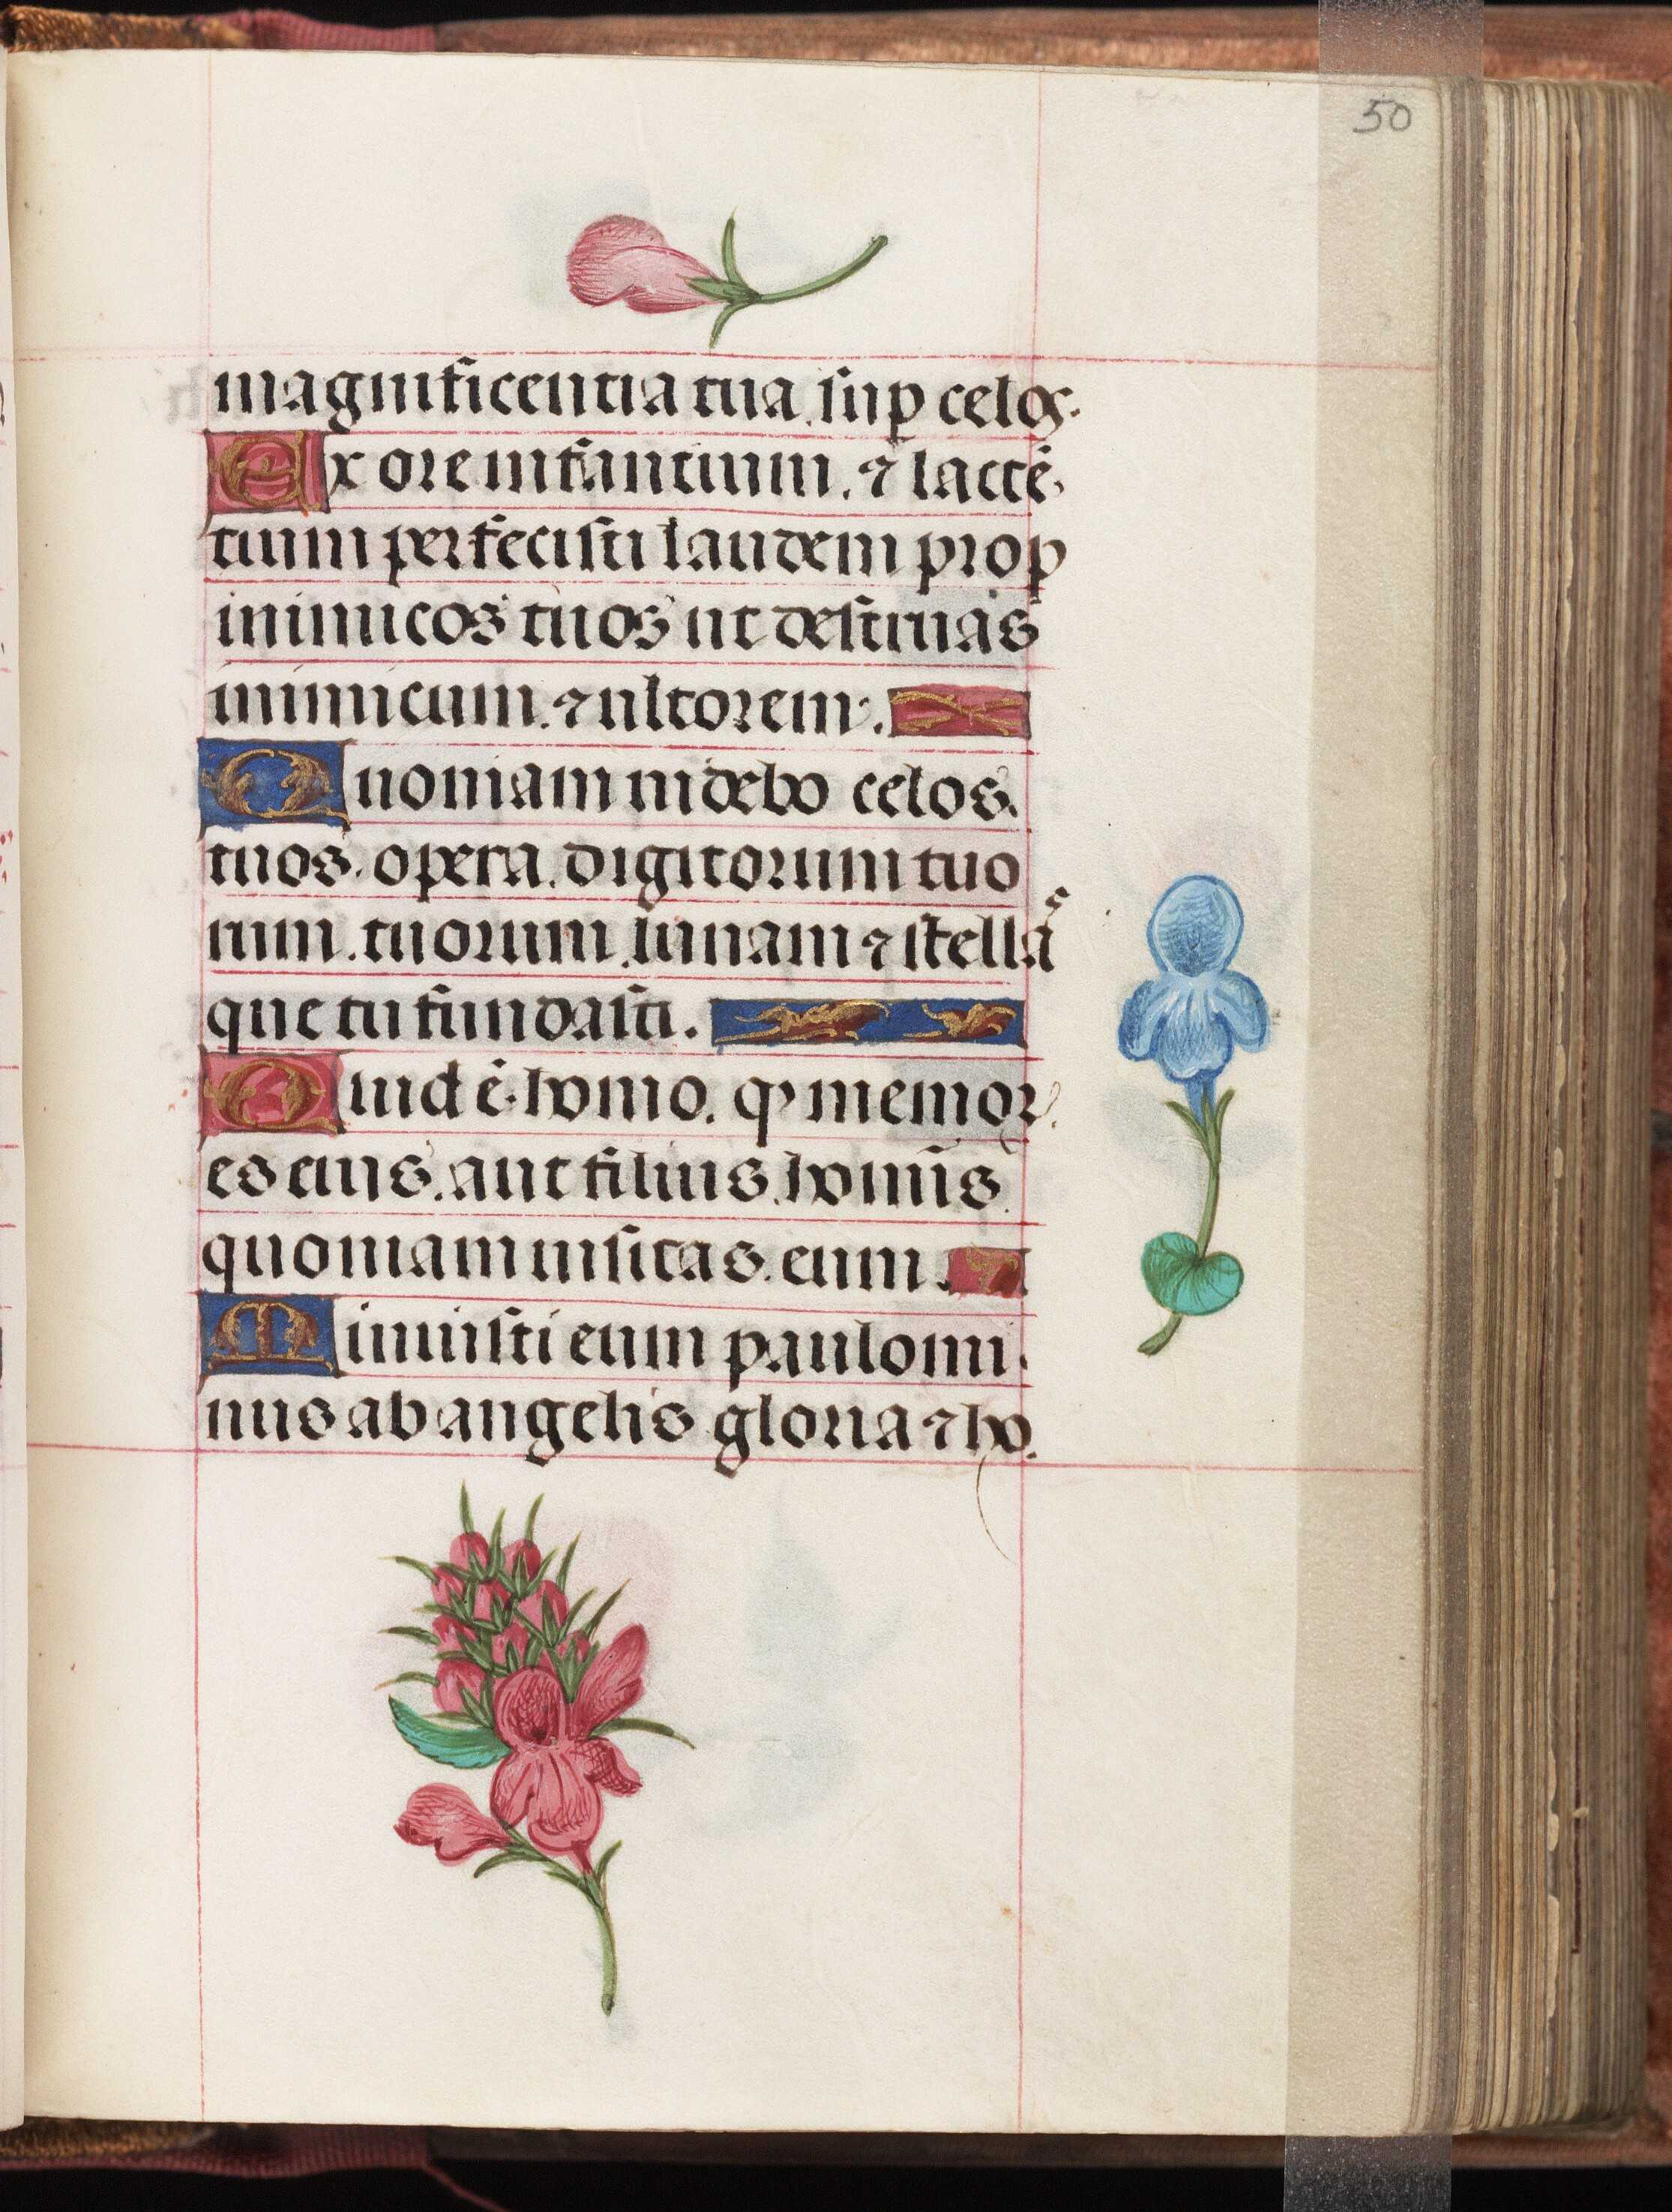 50
magnificentia tua. sup celoꝝ.
Ex ore infantium. ⁊ lactē
tium perfecisti laudem prop
inimicos tuos ut destruas
inimicum. ⁊ ultorem.
Quoniam uidebo celos.
tuos. opera. digitorum tuo
rum. tuorum. lunam ⁊ stellas
que tu fundasti.
Quid ē. homo. q memor.
es eius. aut filius. hominis
quoniam uisitas. eum.
Minuisti eum paulomi
nus ab angelis gloria ⁊ ho.